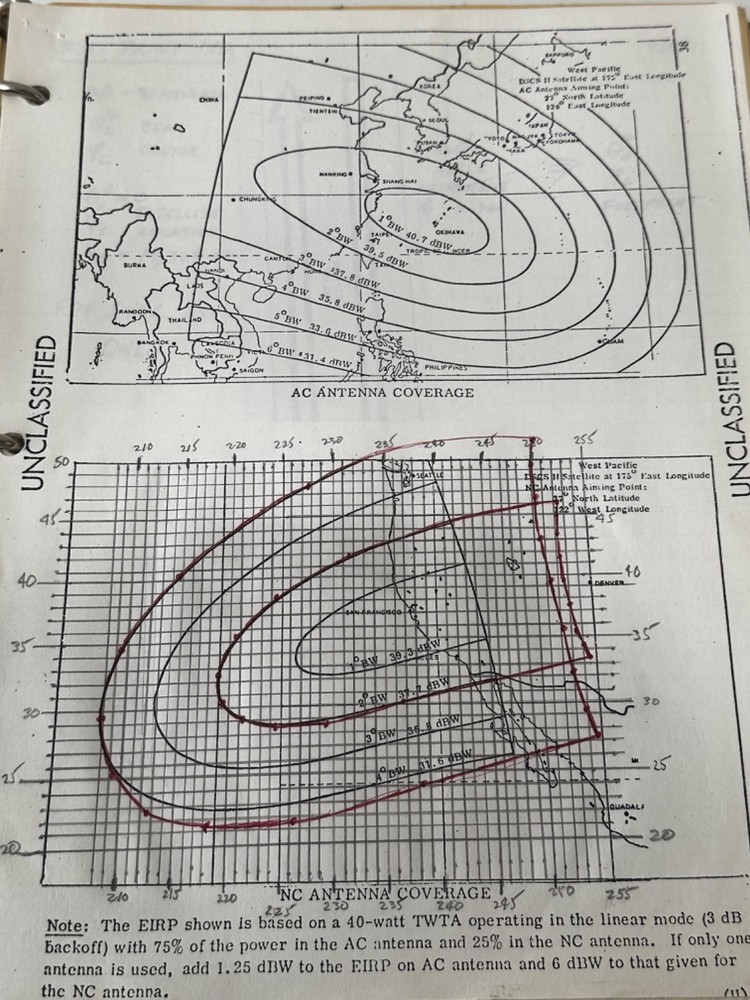 38
SAPPORO
West Pacific
DSCS II Satellite at 175° East Longitude
AC Antenna Aiming Point:
27° North Latitude
128° East Longitude
CHINA
PEIPING
TIENTSIN
KOREA
SEOUL
PUSAN
JAPAN
TOKYO
YOKOHAMA
NANKING
SHANGHAI
CHUNGKING
1°BW 40.7 dBW
OKINAWA
TAIPEI
2°BW 39.5 dBW
TROPIC OF CANCER
CANTON
3°BW 37.8 dBW
BURMA
HANOI
LAOS
4°BW 35.8 dBW
RANGOON
THAILAND
5°BW 33.6 dBW
GUAM
BANGKOK
CAMBODIA
PHNOM PENH
6°BW 31.4 dBW
SAIGON
PHILIPPINES
UNCLASSIFIED
UNCLASSIFIED
AC ANTENNA COVERAGE
210 215 220 225 230 235 240 245 250 255
50
West Pacific
DSCS II Satellite at 175° East Longitude
NC Antenna Aiming Point:
37° North Latitude
122° West Longitude
SEATTLE
45 45
40 40
DENVER
SAN FRANCISCO
35 35
1°BW 39.3 dBW
2°BW 37.7 dBW
30 30
3°BW
4°BW 31.6 dBW
25 25
20 20
210 215 220 225 230 235 240 245 250 255
NC ANTENNA COVERAGE
Note: The EIRP shown is based on a 40-watt TWTA operating in the linear mode (3 dB
backoff) with 75% of the power in the AC antenna and 25% in the NC antenna. If only one
antenna is used, add 1.25 dBW to the EIRP on AC antenna and 6 dBW to that given for
the NC antenna.
(U)